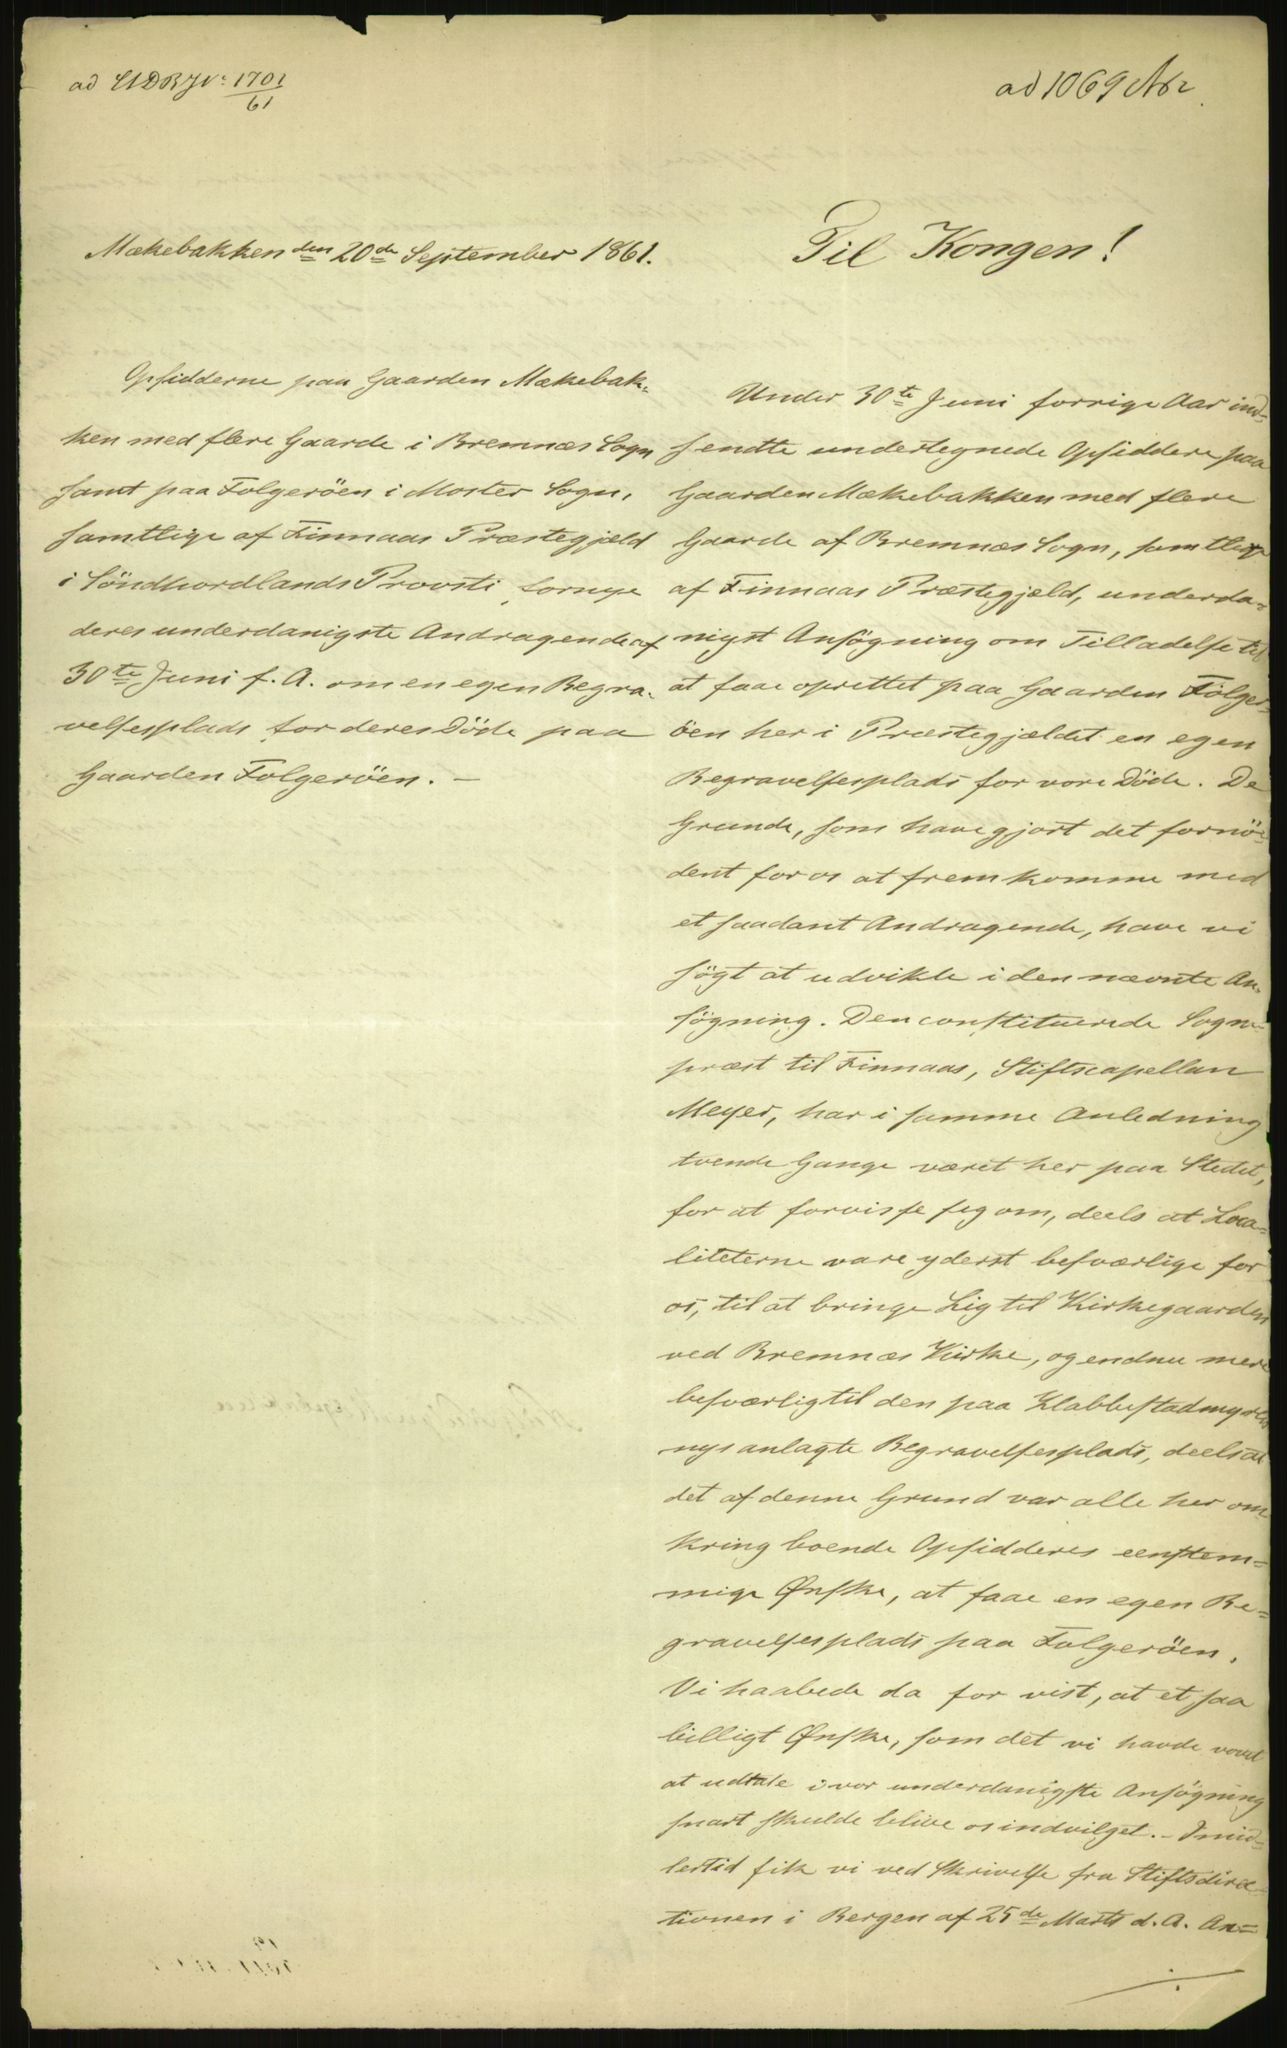 ad 1701/61
ad 1069
Mækebakken den 20de September 1861.
Til Kongen!
Opsidderne paa Gaarden Mækebak-
ken med flere Gaarde i Bremnæs Sogn
samt paa Folgeröen i Moster Sogn,
samtlige af Finnaas Præstegjeld
i Söndhordlands Provsti, fornye
deres underdanigste Andragende af
30te Juni f. A. om en egen Begra-
velsesplads for deres Döde paa
Gaarden Folgeröen. —
Under 30te Juni forrige Aar ind-
sendte undertegnede Opsiddere paa
Gaarden Mækebakken med flere
Gaarde af Bremnæs Sogn, samtlige
af Finnaas Præstegjæld, underda-
nigst Ansögning om Tilladelse til
at faae oprettet paa Gaarden Folger-
öen her i Præstegjældet en egen
Begravelsesplads for vore Döde. De
Grunde, som have gjort det fornö-
dent for os at fremkomme med
et saadant Andragende, have vi
sögt at udvikle i den nævnte An-
sögning. Den constituerede Sogne-
præst til Finnaas, Stiftscapellan
Meyer, har i samme Anledning
tvende Gange været her paa Stedet,
for at forvisse seg om, deels at Loca-
liteterne vare yderst besværlige for
os, til at bringe Lig til Kirkegaarden
ved Bremnæs Kirke, og endnu mere
besværlig til den paa Klabbestadmyren
nys anlagte Begravelsesplads, deels at
det af denne Grund var alle her om
kring boende Opsidderes eenstem-
mige Ønske, at faae en egen Be-
gravelsesplads paa Folgeröen.
Vi haabede da for vist, at et saa
billigt Ønske, som det vi havde vovet
at udtale i vor underdanigste Ansögning
snart skulde blive os indvilget. – Imid-
lertid fik vi ved Skrivelse fra Stiftsdirec-
tionen i Bergen af 25de Marts d. A. An-